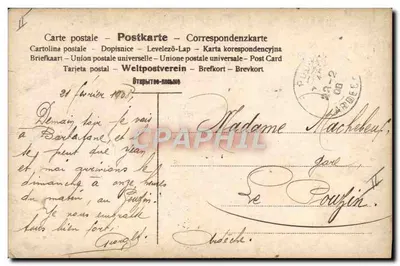 Carte postale - Postkarte - Correspondenzkarte
Cartolina postale - Dopisnice - Levelező-Lap - Karta korespondencyjna
Briefkaart - Union postale universelle - Unione postale universale - Post Card
Tarjeta postal - Weltpostverein - Brefkort - Brevkort
Открытое письмо
21 février 1908
Demain soir je vais
à et
peut que Jean
et moi arrivions le
dimanche à onze heures
du matin, au Pouzin.
Je vous embrasse
tous bien fort.
Madame
gare
Le Pouzin
Ardèche
CPHIL
22-2
08
ARDECHE